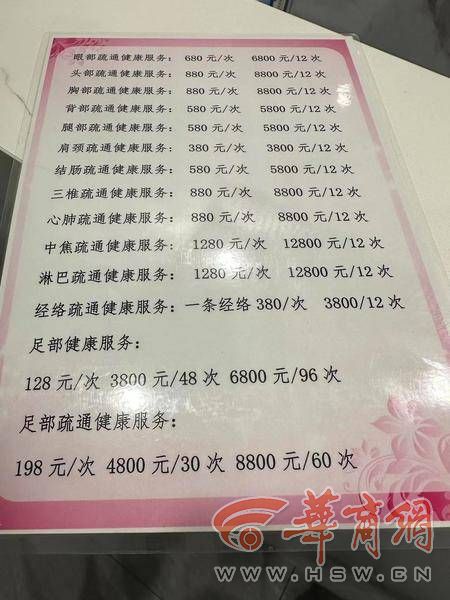 眼部疏通健康服务: 680 元/次 6800 元/12 次
头部疏通健康服务: 880 元/次 8800 元/12 次
胸部疏通健康服务: 880 元/次 8800 元/12 次
背部疏通健康服务: 580 元/次 5800 元/12 次
腿部疏通健康服务: 580 元/次 5800 元/12 次
肩颈疏通健康服务: 380 元/次 3800 元/12 次
结肠疏通健康服务: 580 元/次 5800 元/12 次
三椎疏通健康服务: 880 元/次 8800 元/12 次
心肺疏通健康服务: 880 元/次 8800 元/12 次
中焦疏通健康服务: 1280 元/次 12800 元/12 次
淋巴疏通健康服务: 1280 元/次 12800 元/12 次
经络疏通健康服务: 一条经络 380/次 3800/12 次
足部健康服务:
128 元/次 3800 元/48 次 6800 元/96 次
足部疏通健康服务:
198 元/次 4800 元/30 次 8800 元/60 次
華商網
WWW.HSW.CN